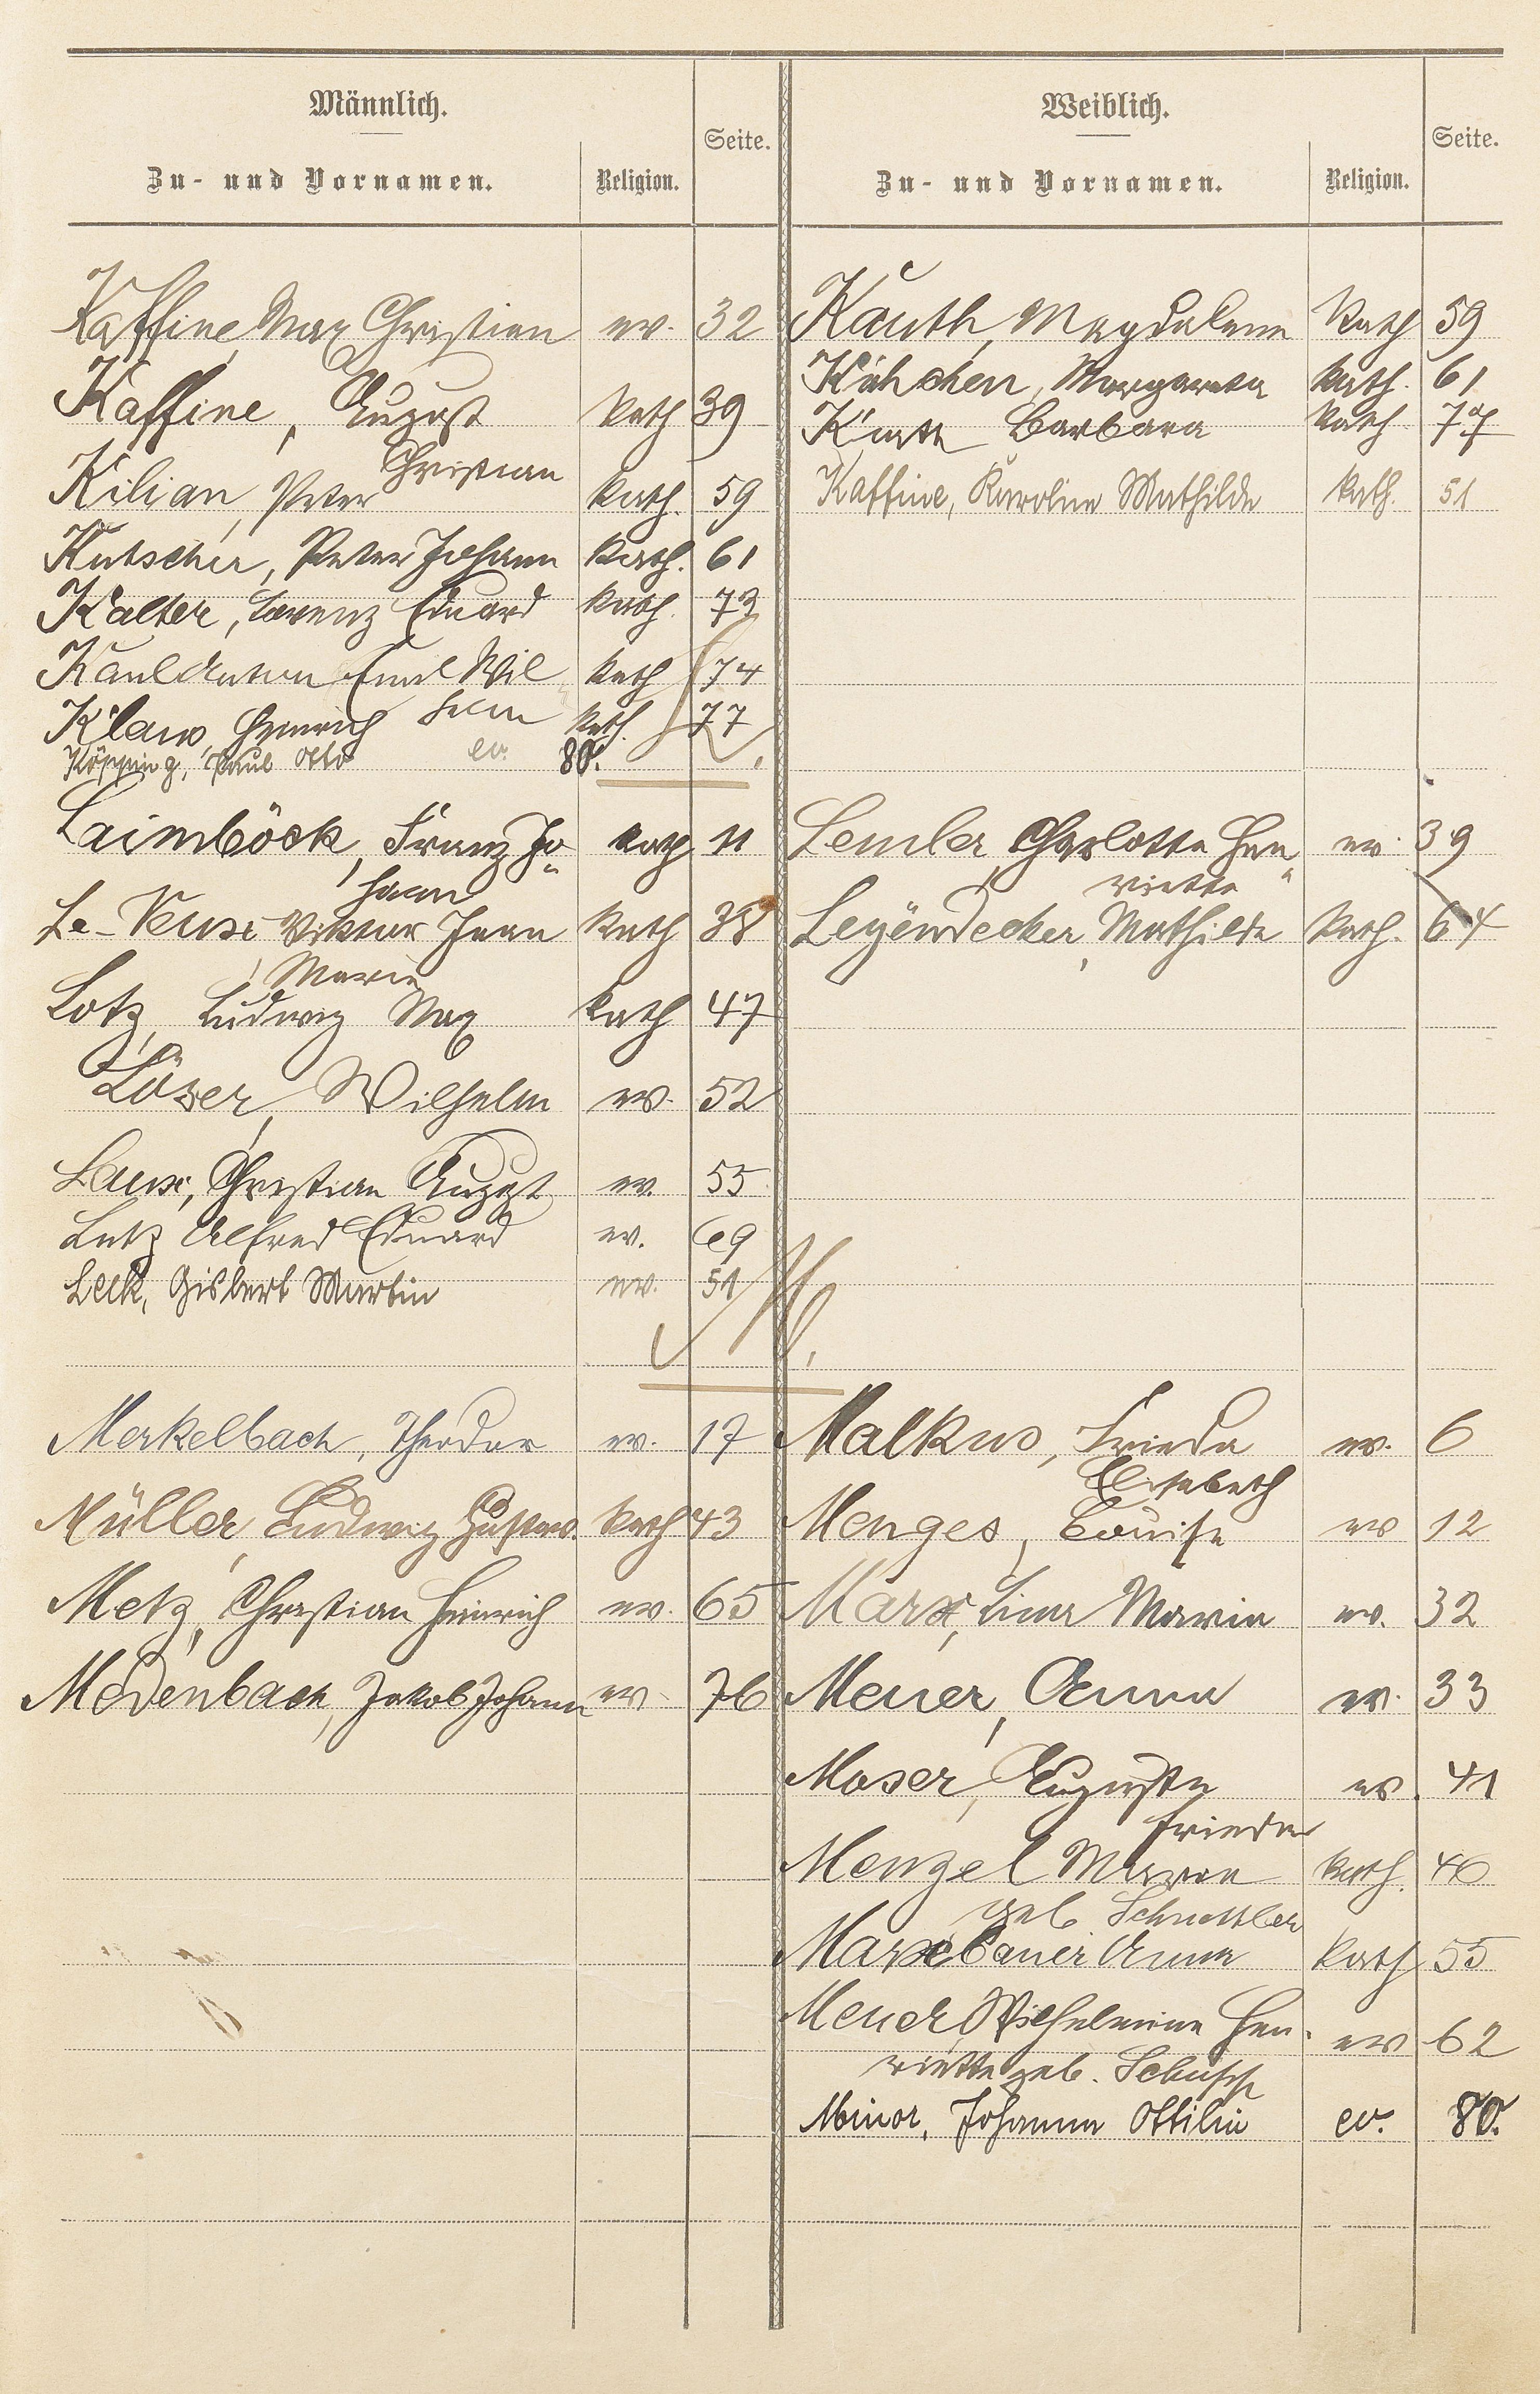 Männlich.
Zu- und Vornamen.
Religion.
Seite.
Kaffine, Max Christian ev. 32
Kaffine, August kath 39
Christian
Kilian, Peter kath. 59
Kutscher, Peter Johann kath. 61
Kalter, Lorenz Eduard kath. 73
Kaul Anton Emil Wil kath 74
helm
Klaus, Heinrich kath. 77
Köpping, Paul Otto ev. 80.
L.
Laimböck, Franz Jo kath 11
hann
Le-Veux Viktor Jean kath 38
Marie
Lotz, Ludwig Max kath 47
Löser, Wilhelm ev. 52
Laux, Christian August ev. 55
Lutz Alfred Eduard ev. 69
Leck, Gisbert Martin ev. 51
M.
Merkelbach, Theodor ev. 17
Müller, Ludwig Gustav. kath 43
Metz, Christian Heinrich ev. 65
Medenbach, Jakob Johann ev 76
Weiblich.
Zu- und Vornamen.
Religion.
Seite.
Kauth, Magdalena kath 59
Kühchen, Margareta kath. 61
Barbara kath 77
Kaffine, Karolina Mathilde kath. 51
Lemler, Charlotte Hen ev. 39
riette
Leyendecker, Mathilde kath. 64
Malkus, Frieda ev. 6
Elisabeth
Menges, Louise ev 12
Marx, Lina Maria ev. 32
Meuer, Anna ev. 33
Moser, Auguste ev. 41
Frieda
Menzel Maria kath. 46
geb.
Marxbauer Anna kath 55
Meuer, Wilhelmine Hen. ev 62
riette geb. Schupp
Minor, Johanna Ottilie ev. 80.